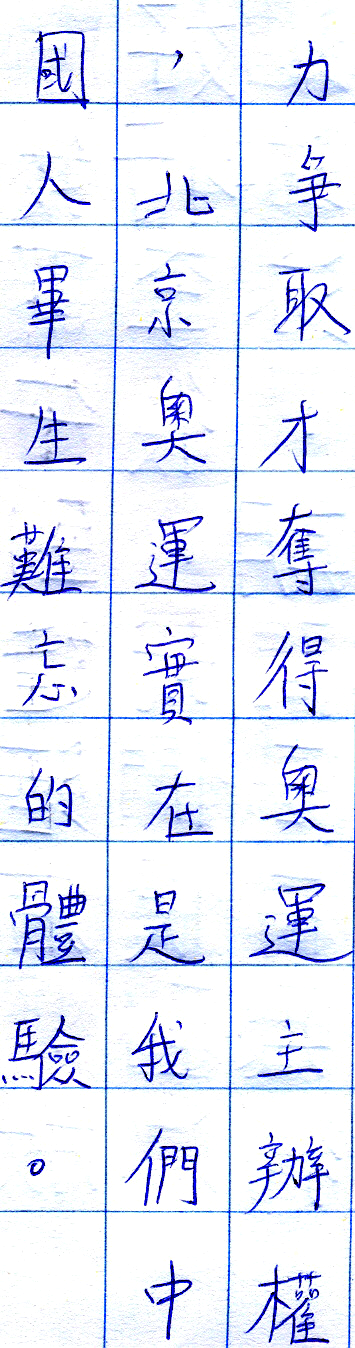 力爭取才奪得奧運主辦權
，北京奧運實在是我們中
國人畢生難忘的體驗。